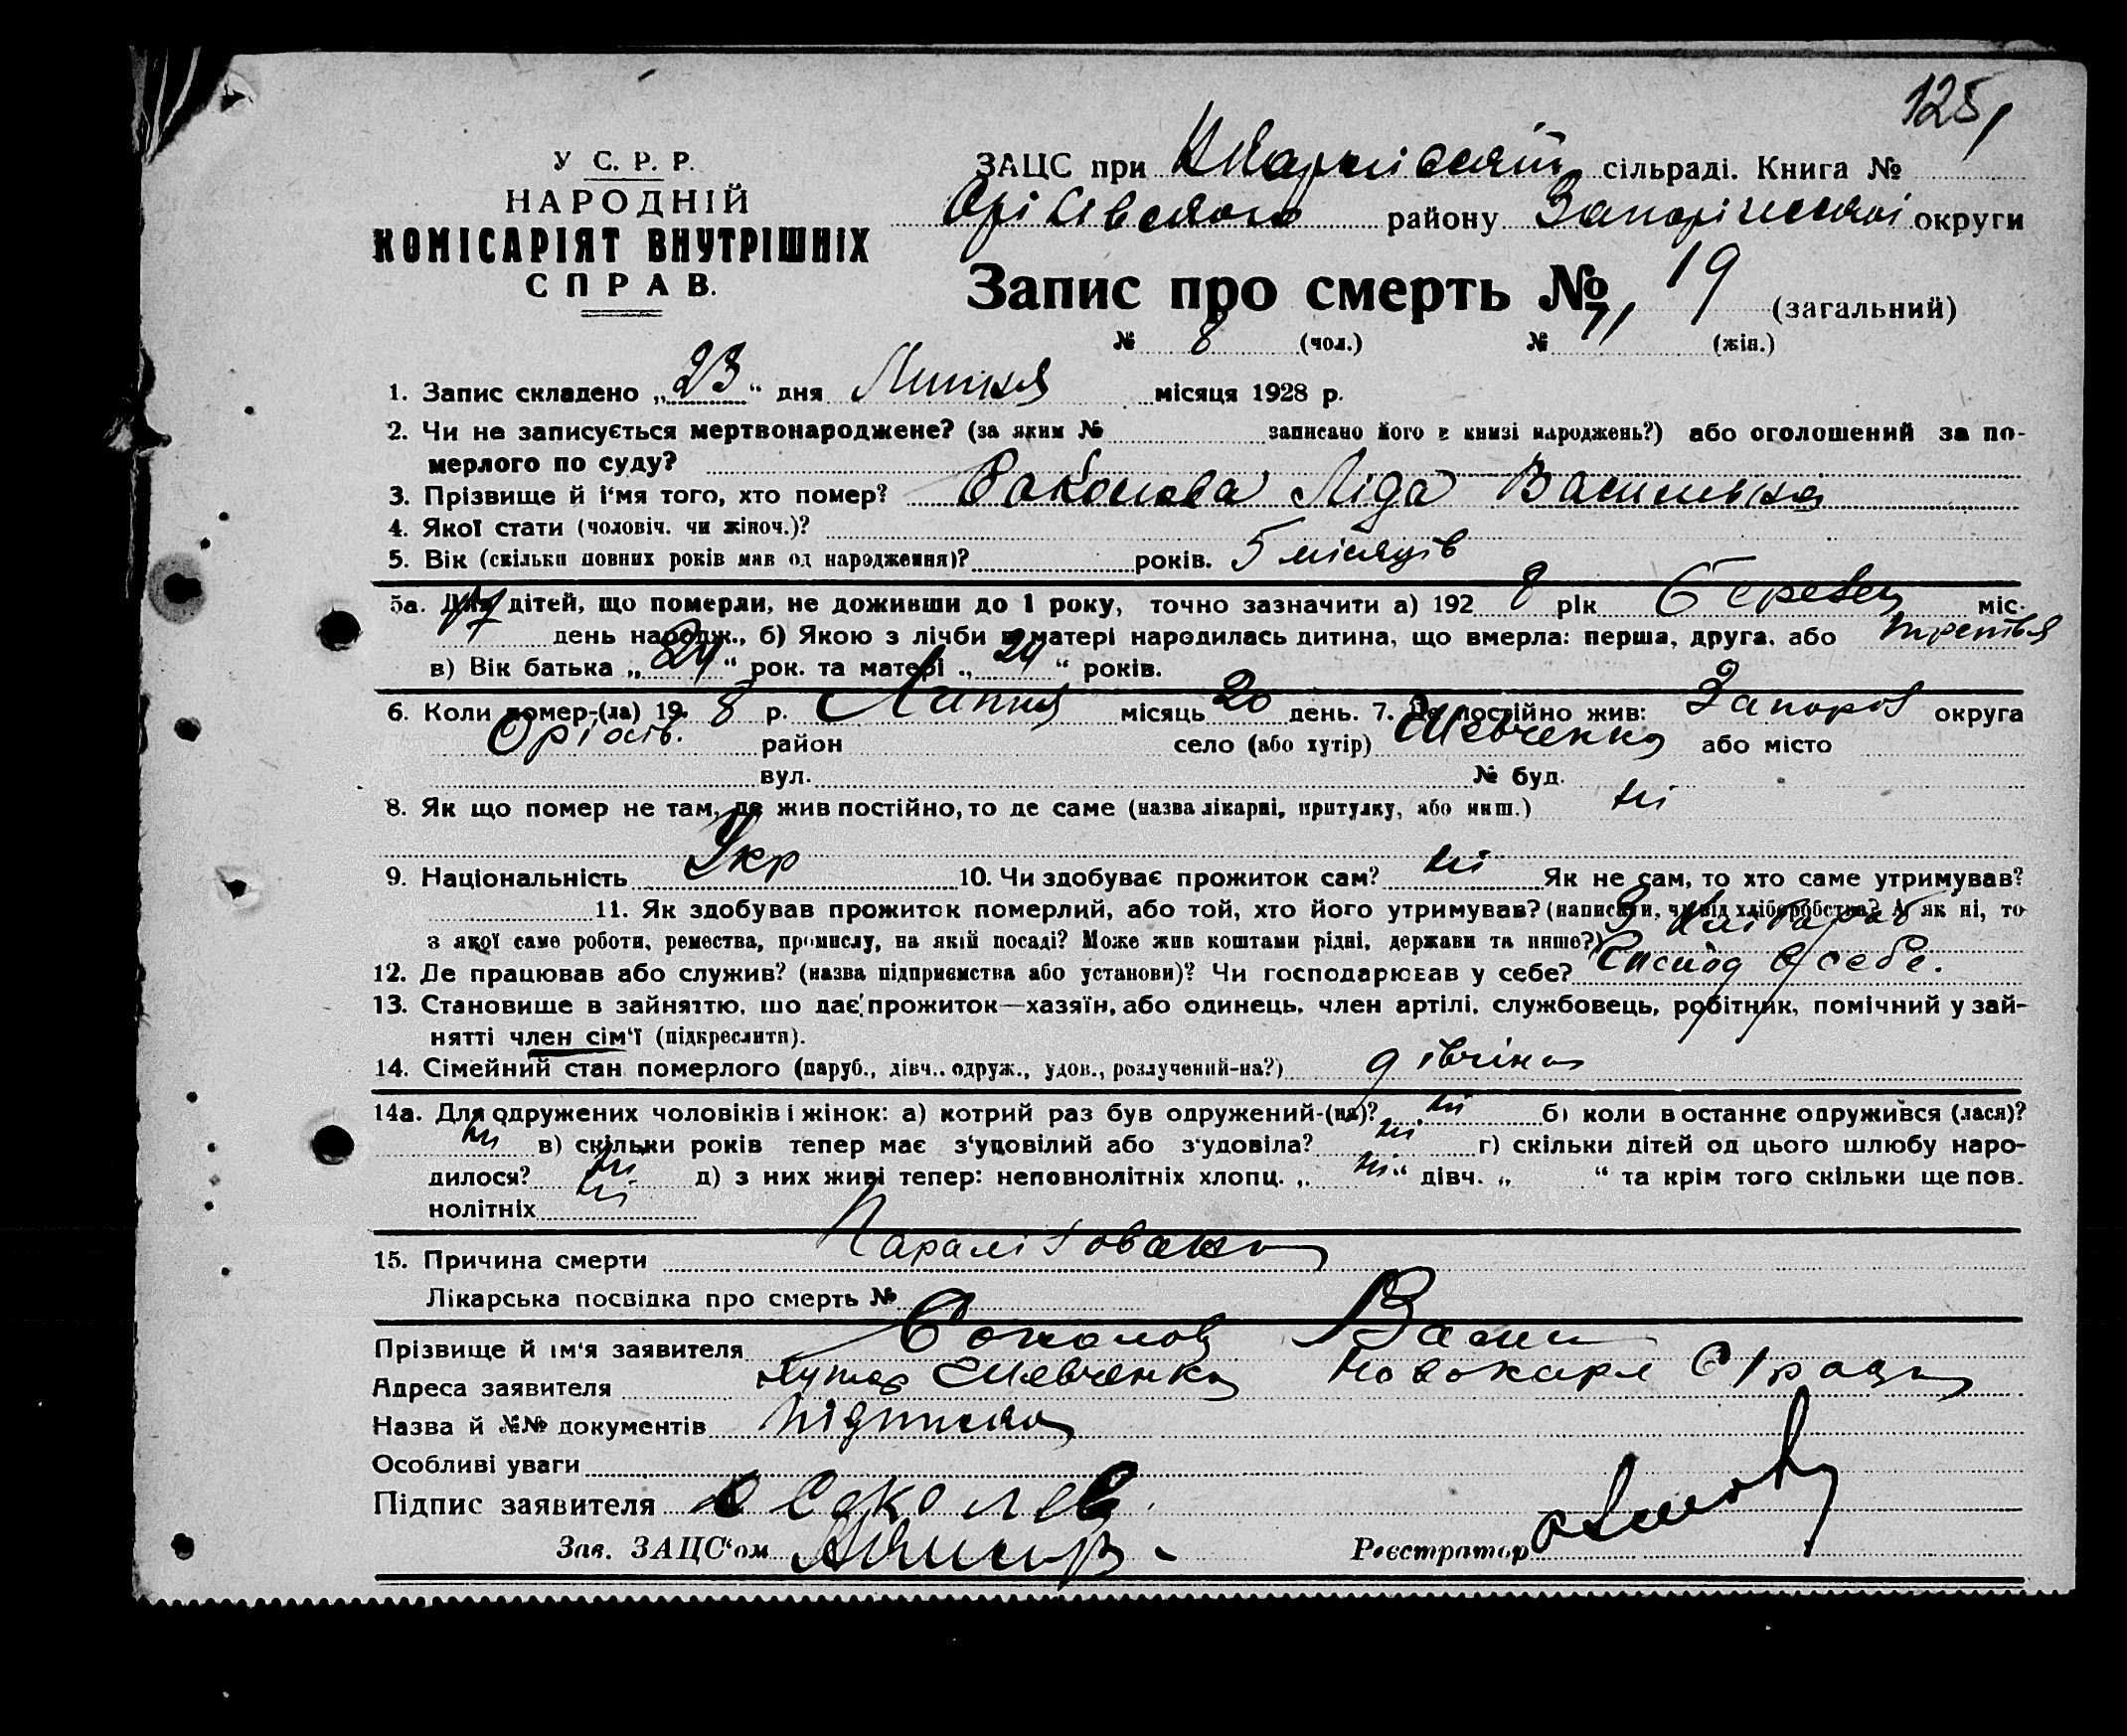 125
У С. Р. Р.
НАРОДНІЙ
КОМІСАРІЯТ ВНУТРІШНІХ
СПРАВ.
ЗАЦС при сільраді. Книга №
району округи
Запис про смерть № 19 (загальний)
№ 8 (чол.) № 11 (жін.)
1. Запис складено „23“ дня Липня місяця 1928 р.
2. Чи не записується мертвонароджене? (за яким № записано його в книзі народжень?) або оголошений за по-
мерлого по суду?
3. Прізвище й і'мя того, хто помер? Ліда Васильвна
4. Якої стати (чоловіч. чи жіноч.)?
5. Вік (скільки повних років мав од народження)? років. 5 місяців
5а. Для дітей, що померли, не доживши до 1 року, точно зазначити а) 1928 рік міс.
день народж., б) Якою з лічби в матері народилась дитина, що вмерла: перша, друга, або третья
в) Вік батька „24“ рок. та матері „24“ років.
6. Коли помер-(ла) 198 р. Липня місяць 20 день. 7. Де постійно жив: Запоріз округа
Оріхів. район село (або хутір) Шевченка або місто
вул. № буд.
8. Як що помер не там, де жив постійно, то де саме (назва лікарні, притулку, або инш.) ні
9. Національність Укр 10. Чи здобуває прожиток сам? ні Як не сам, то хто саме утримував?
11. Як здобував прожиток померлий, або той, хто його утримував? (написати, чи від хліборобства? А як ні, то
з якої саме роботи, ремества, промислу, на якій посаді? Може жив коштами рідні, держави та инше?)
12. Де працював або служив? (назва підприємства або установи)? Чи господарював у себе? у себе.
13. Становище в зайняттю, що дає прожиток—хазяїн, або одинець, член артілі, службовець, робітник, помічний у зай-
нятті член сім'ї (підкреслити).
14. Сімейний стан померлого (паруб., дівч., одруж., удов., розлучений-на?) дівчина
14а. Для одружених чоловіків і жінок: а) котрий раз був одружений-(на)? ні б) коли в останнє одружився (лася)?
ні в) скільки років тепер має з'уцовілий або з'удовіла? ні г) скільки дітей од цього шлюбу наро-
дилося? ні д) з них живі тепер: неповнолітніх хлопц. „ ні “ дівч. „ “ та крім того скільки ще пов.
нолітніх ні
15. Причина смерти
Лікарська посвідка про смерть №
Прізвище й ім'я заявителя Соколов
Адреса заявителя хутар Шевченка
Назва й №№ документів підписка
Особливі уваги
Підпис заявителя Соколов
Зав. ЗАЦС'ом Реєстратор